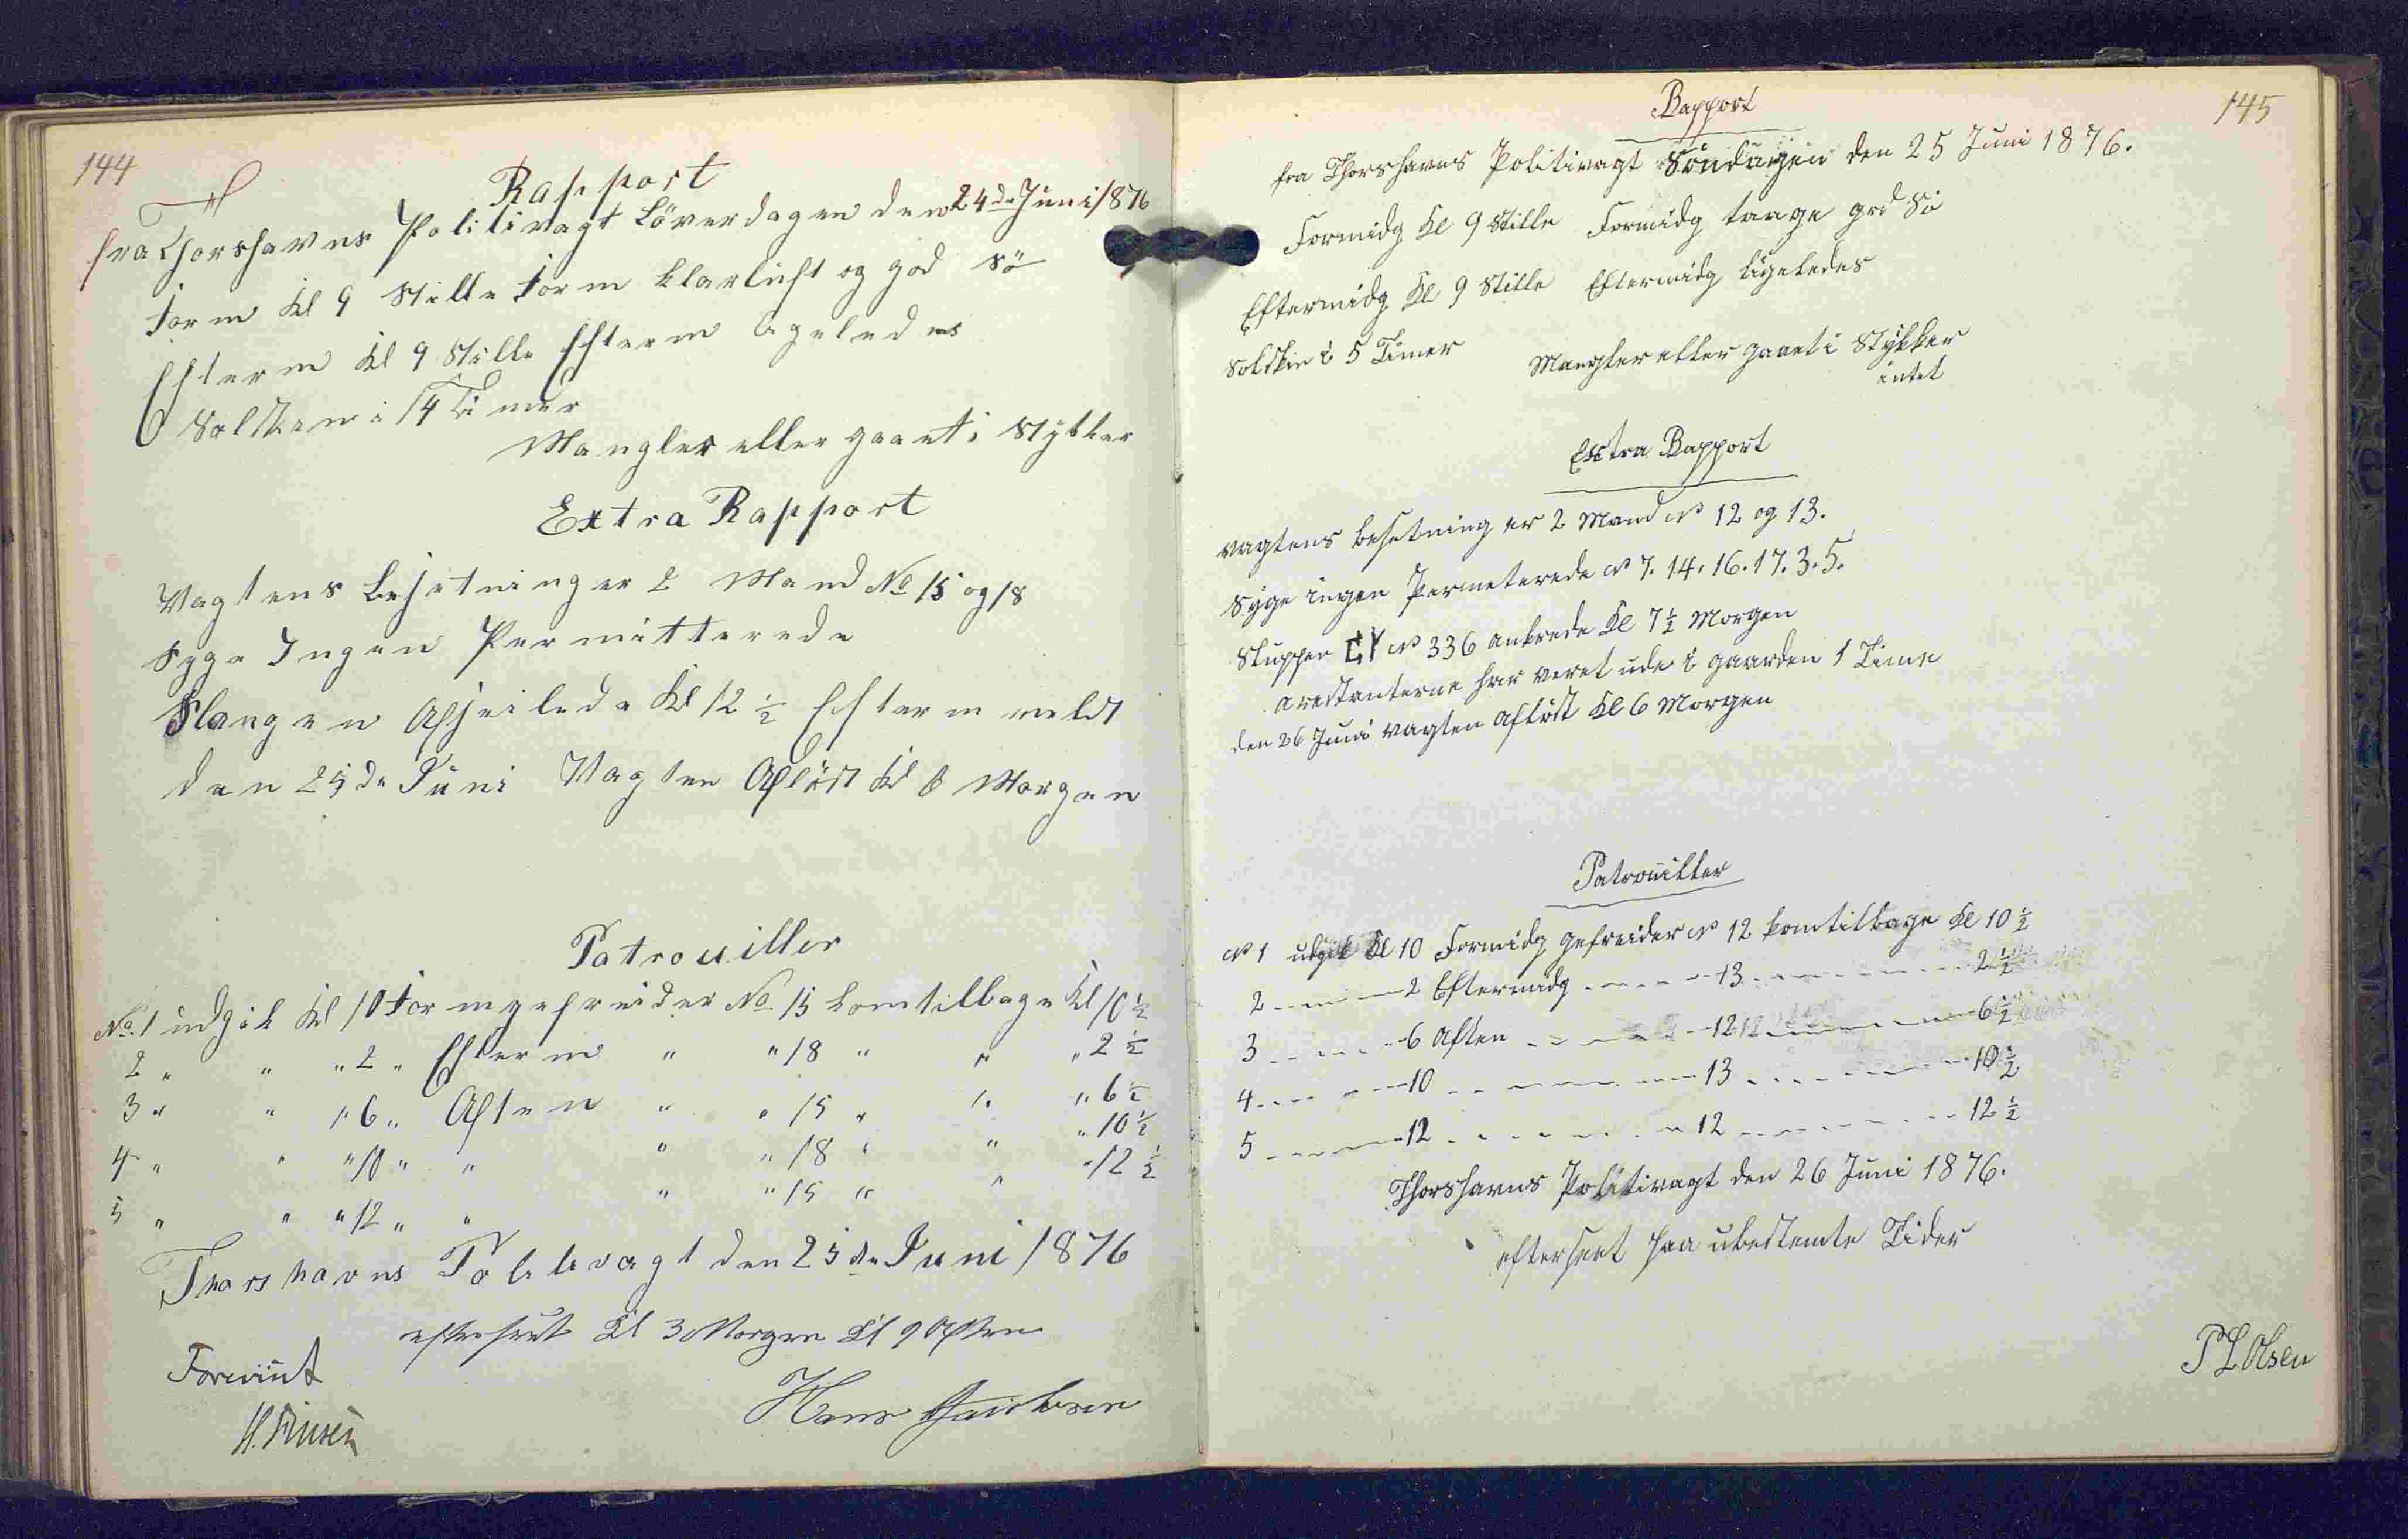 144
Rapport
fra Thorshavns Politivagt Löverdagen den 24de Juni 1876
Form Kl 9 Stille Form klarluft og god Sö
Efterm Kl 9 Stille Efterm ligeledes
Solsken i 14 Timer
Mangler eller gaaet i Stykker
Extra Rapport
Vagtens Besetning er 2 Mand No 15 og 18
Syge Ingen Permitterede
Slangen Afseilede Kl 12 ½ Efterm
den 25de Juni Vagten Aflöst Kl 6 Morgen
Patrouiller
No. 1 udgik Kl 10 Form gefreider No. 15 komtilbage Kl 10 ½
2 " " " 2 " Efterm " " 18 " " " 2 ½
3 " " " 6 " Aften " " 15 " " " 6 ½
4 " " " 10 " " " " 18 " " " 10 ½
5 " " " 12 " " " " 15 " " " 12 ½
Thorshavns Politivagt den 25de Juni 1876
efterseet Kl 3 Morgen Kl 9 Aften
Forevist
H. Finsen
Hans Jacobsen
145
Rapport
fra Thorshavns Politivagt Söndagen den 25 Juni 1876.
Formidg Kl 9 Stille Formidg taage god Sö
Eftermidg Kl 9 Stille Eftermidg ligeledes
Solskin i 5 Timer Mangler eller gaaet i Stykker
intet
Extra Rapport
vagtens besetning er 2 Mand No 12 og 13.
Syge ingen Permeterede No 7. 14. 16. 17. 3. 5.
Sluppen No 336 ankrede Kl 7 ½ Morgen
arestanterne har veret ude i gaarden 1 Time
den 26 Juni vagten Aflöst Kl 6 Morgen
Patrouiller
No 1 udgik Kl 10 Formidg gefreider No 12 komtilbage Kl 10 ½
2 2 Eftermidg 13 2 ½
3 6 Aften 12 12 6 ½
4 10 13 10 ½
5 12 12 12 ½
Thorshavns Politivagt den 26 Juni 1876.
efterseet paa ubestemte Tider
P L Olsen